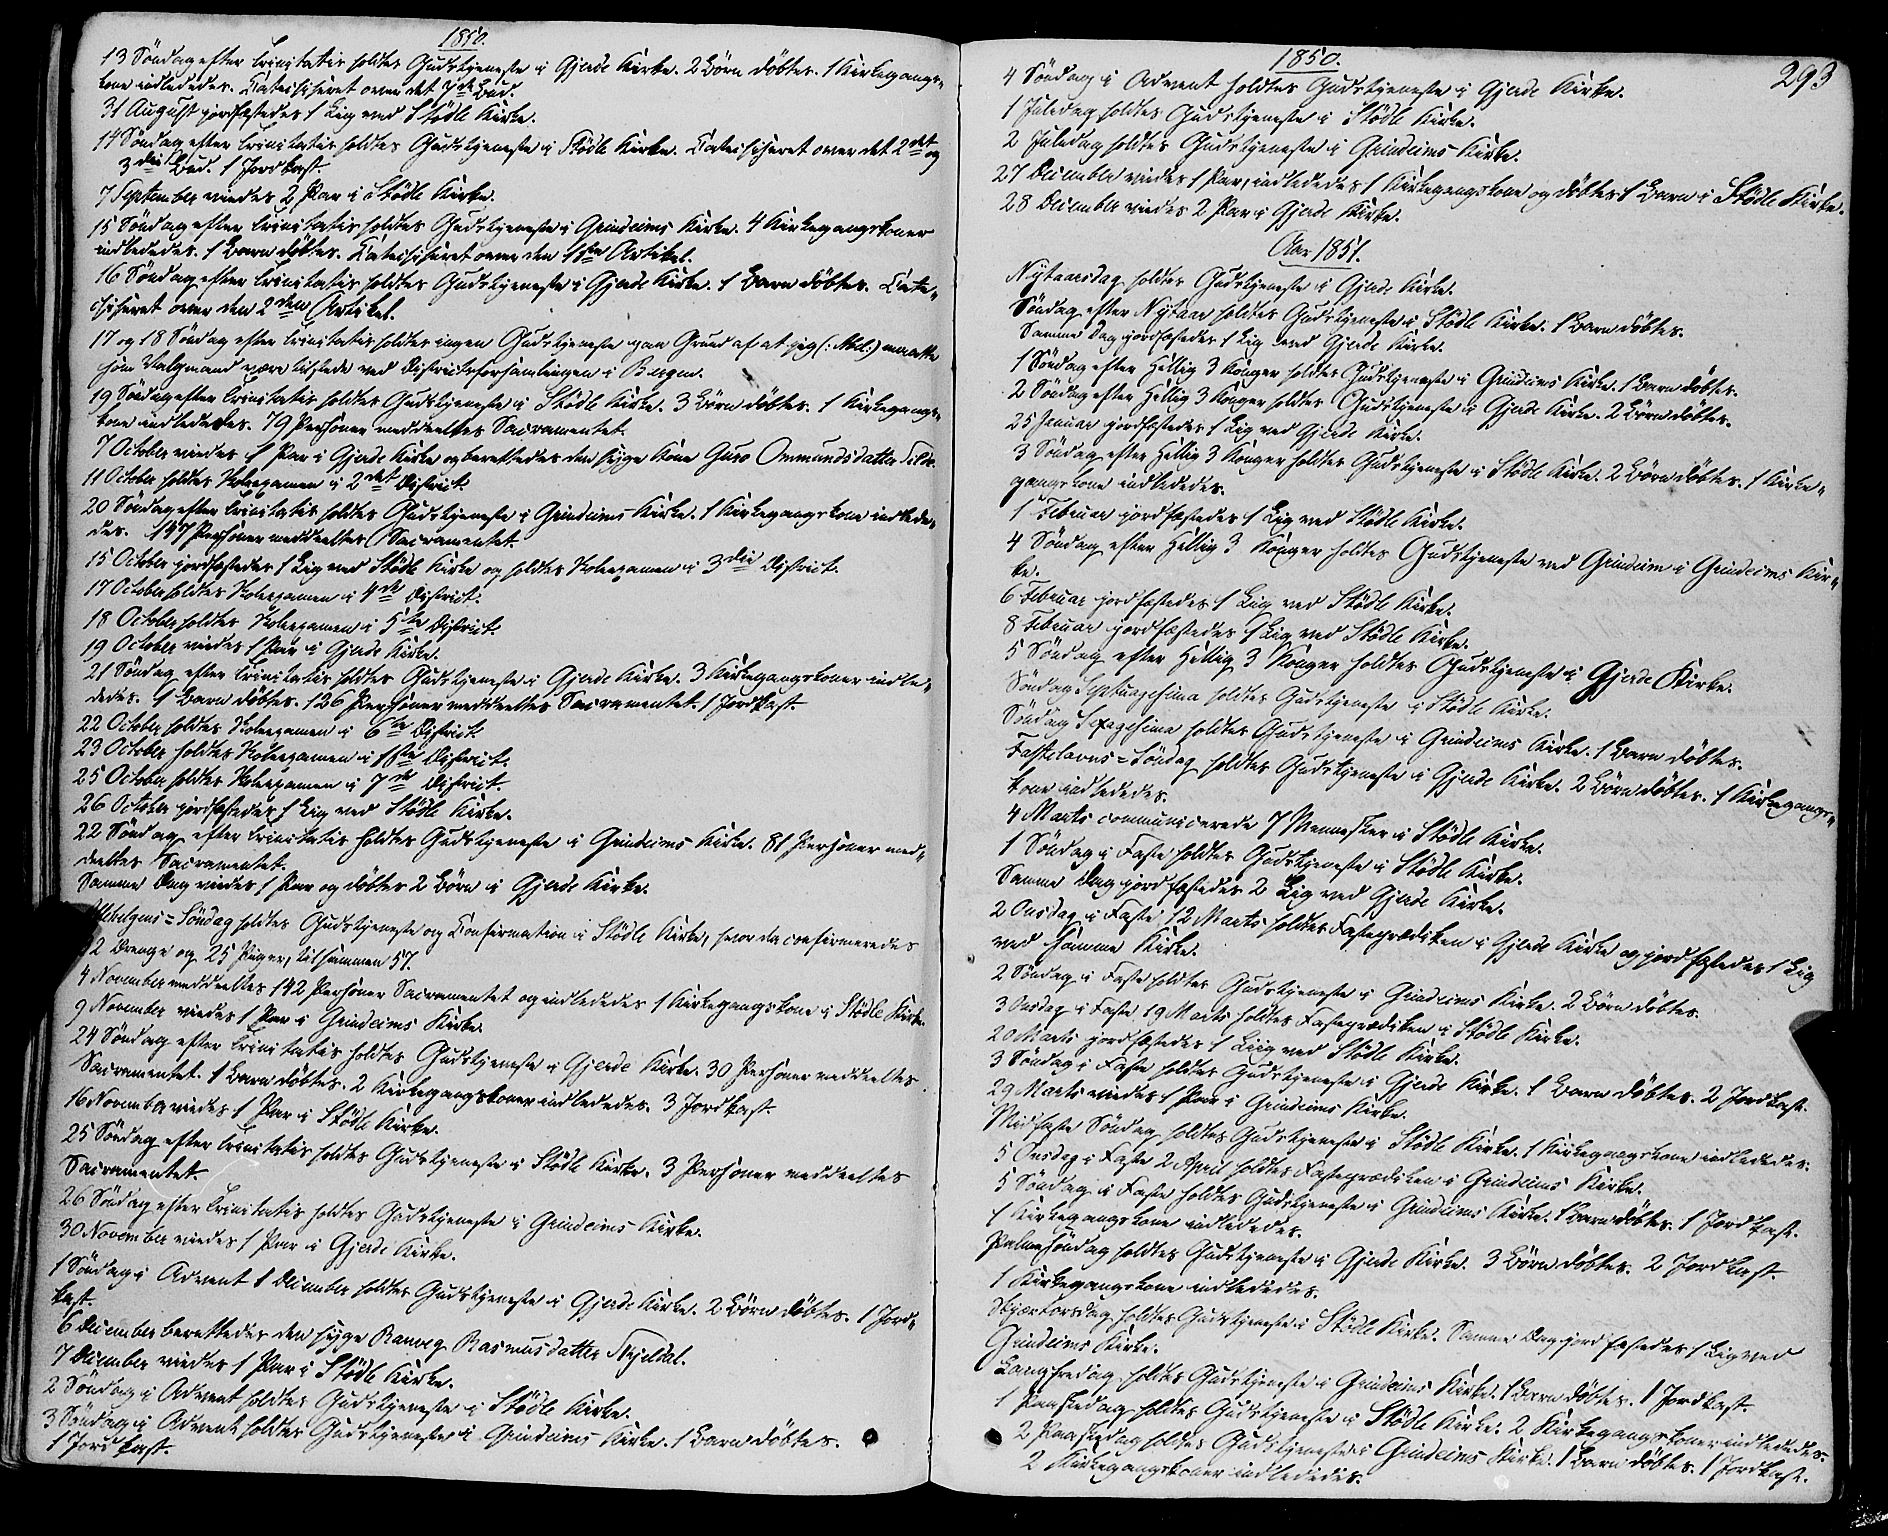 1850.
13 Søndag efter Trinitatis holdtes Gudstjeneste i Gjerde Kirke. 2 Børn døbtes. 1 Kirkegangs-
kone indlededes. Catechiseret over det 7de Bud.
31 August jordfæstedes 1 Liig ved Stødle Kirke.
14 Søndag efter Trinitatis holdtes Gudstjeneste i Stødle Kirke. Catechiseret over det 2det og
3die Bud. 1 Jordkast.
7 September viedes 2 Par i Stødle Kirke.
15 Søndag efter Trinitatis holdtes Gudstjeneste i Grindeims Kirke. 4 Kirkegangskoner
indlededes. 1 Barn døbtes. Catechiseret over den 1ste Artikel.
16 Søndag efter Trinitatis holdtes Gudstjeneste i Gjerde Kirke. 1 Barn døbtes. Cate-
chiseret over den 2den Artikel.
17 og 18 Søndag efter Trinitatis holdtes ingen Gudstjeneste paa Grund af at jeg maatte
som Valgmand være tilstede ved Districtsforsamlingen i Bergen.
19 Søndag efter Trinitatis holdtes Gudstjeneste i Stødle Kirke. 3 Børn døbtes. 1 Kirkegangs-
kone indlededes. 79 Personer meddeeltes Sacramentet.
7 October viedes 1 Par i Gjerde Kirke og berettedes den syge Kone Guro Ommundsdatter
11 October holdtes Skoleexamen i 2det District.
20 Søndag efter Trinitatis holdtes Gudstjeneste i Grindeims Kirke. 1 Kirkegangskone indlede-
des. 147 Personer meddeeltes Sacramentet.
15 October jordfæstedes 1 Liig ved Stødle Kirke og holdtes Skoleexamen i 3die District.
17 October holdtes Skoleexamen i 4de District.
18 October holdtes Skoleexamen i 5te District.
19 October viedes 1 Par i Gjerde Kirke.
21 Søndag efter Trinitatis holdtes Gudstjeneste i Gjerde Kirke. 3 Kirkegangskoner indle-
dedes. 1 Barn døbtes. 126 Personer meddeeltes Sacramentet. 1 Jordkast.
22 October holdtes Skoleexamen i 6te District.
23 October holdtes Skoleexamen i 1ste District.
25 October holdtes Skoleexamen i 7de District.
26 October jordfæstedes 1 Liig ved Stødle Kirke.
22 Søndag efter Trinitatis holdtes Gudstjeneste i Grindeims Kirke. 81 Personer med-
deeltes Sacramentet.
Samme Dag viedes 1 Par og døbtes 2 Børn i Gjerde Kirke.
Allehelgens-Søndag holdtes Gudstjeneste og Confirmation i Stødle Kirke, hvor da confirmeredes
32 Drenge og 25 Piger, tilsammen 57.
4 November meddeeltes 142 Personer Sacramentet og indlededes 1 Kirkegangskone i Stødle Kirke.
9 November viedes 1 Par i Grindeims Kirke.
24 Søndag efter Trinitatis holdtes Gudstjeneste i Gjerde Kirke. 30 Personer meddeeltes
Sacramentet. 1 Barn døbtes. 2 Kirkegangskoner indlededes. 3 Jordkast.
16 November viedes 1 Par i Stødle Kirke.
25 Søndag efter Trinitatis holdtes Gudstjeneste i Stødle Kirke. 3 Personer meddeeltes
Sacramentet.
26 Søndag efter Trinitatis holdtes Gudstjeneste i Grindeims Kirke.
30 November viedes 1 Par i Gjerde Kirke.
1 Søndag i Advent 1 December holdtes Gudstjeneste i Gjerde Kirke. 2 Børn døbtes. 1 Jord-
kast.
6 December berettedes den syge Ranveg Rasmusdatter Skjeldal.
7 December viedes 1 Par i Stødle Kirke.
2 Søndag i Advent holdtes Gudstjeneste i Stødle Kirke.
3 Søndag i Advent holdtes Gudstjeneste i Grindeims Kirke. 1 Barn døbtes.
1 Jordkast.
1850.
293
4 Søndag i Advent holdtes Gudstjeneste i Gjerde Kirke.
1 Juledag holdtes Gudstjeneste i Stødle Kirke.
2 Juledag holdtes Gudstjeneste i Grindeims Kirke.
27 December viedes 1 Par, indlededes 1 Kirkegangskone og døbtes 1 Barn i Stødle Kirke.
28 December viedes 2 Par i Gjerde Kirke.
Aar 1851.
Nytaarsdag holdtes Gudstjeneste i Gjerde Kirke.
Søndag efter Nytaar holdtes Gudstjeneste i Stødle Kirke. 1 Barn døbtes.
Samme Dag jordfæstedes 1 Liig ved Gjerde Kirke.
1 Søndag efter Hellig 3 Konger holdtes Gudstjeneste i Grindeims Kirke. 1 Barn døbtes.
2 Søndag efter Hellig 3 Konger holdtes Gudstjeneste i Gjerde Kirke. 2 Børn døbtes.
25 Januar jordfæstedes 1 Liig ved Gjerde Kirke.
3 Søndag efter Hellig 3 Konger holdtes Gudstjeneste i Stødle Kirke. 2 Børn døbtes. 1 Kirke-
gangskone indlededes.
1 Februar jordfæstedes 1 Liig ved Stødle Kirke.
4 Søndag efter Hellig 3 Konger holdtes Gudstjeneste ved Grindeim i Grindeims Kir-
ke.
6 Februar jordfæstedes 1 Liig ved Stødle Kirke.
8 Februar jordfæstedes 1 Liig ved Stødle Kirke.
5 Søndag efter Hellig 3 Konger holdtes Gudstjeneste i Gjerde Kirke.
Søndag Septuagesima holdtes Gudstjeneste i Stødle Kirke.
Søndag Sexagesima holdtes Gudstjeneste i Grindeims Kirke. 1 Barn døbtes.
Fastelavns-Søndag holdtes Gudstjeneste i Gjerde Kirke. 2 Børn døbtes. 1 Kirkegangs-
kone indlededes.
4 Marts communicerede 7 Mennesker i Stødle Kirke.
1 Søndag i Faste holdtes Gudstjeneste i Stødle Kirke.
Samme Dag jordfæstedes 2 Liig ved Gjerde Kirke.
2 Onsdag i Faste 12 Marts holdtes Fasteprædiken i Gjerde Kirke og jordfæstedes 1 Liig
ved samme Kirke.
2 Søndag i Faste holdtes Gudstjeneste i Grindeims Kirke. 2 Børn døbtes.
3 Onsdag i Faste 19 Marts holdtes Fasteprædiken i Stødle Kirke.
20 Marts jordfæstedes 1 Liig ved Stødle Kirke.
3 Søndag i Faste holdtes Gudstjeneste i Gjerde Kirke. 1 Barn døbtes. 2 Jordkast.
29 Marts viedes 1 Par i Grindeims Kirke.
Midfaste Søndag holdtes Gudstjeneste i Stødle Kirke. 1 Kirkegangskone indlededes.
5 Onsdag i Faste 2 April holdtes Fasteprædiken i Grindeims Kirke.
5 Søndag i Faste holdtes Gudstjeneste i Grindeims Kirke. 1 Barn døbtes. 1 Jordkast.
1 Kirkegangskone indlededes.
Palmesøndag holdtes Gudstjeneste i Gjerde Kirke. 3 Børn døbtes. 2 Jordkast.
1 Kirkegangskone indlededes.
Skjærtorsdag holdtes Gudstjeneste i Stødle Kirke. Samme Dag jordfæstedes 1 Liig ved
Grindeims Kirke.
Langfredag holdtes Gudstjeneste i Grindeims Kirke. 1 Barn døbtes. 1 Jordkast.
1 Paaskedag holdtes Gudstjeneste i Stødle Kirke. 2 Kirkegangskoner indlededes.
2 Paaskedag holdtes Gudstjeneste i Grindeims Kirke. 1 Barn døbtes. 1 Jordkast.
2 Kirkegangskoner indlededes.